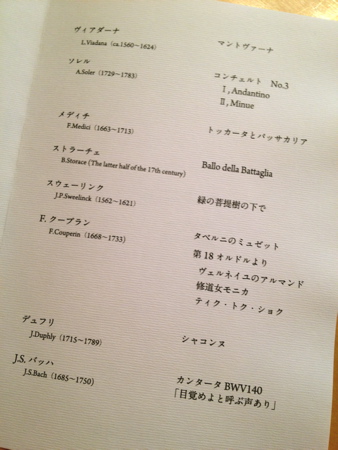 ヴィアダーナ
L.Viadana（ca.1560～1624）
マントヴァーナ
ソレル
A.Soler（1729～1783）
コンチェルト　No.3
Ⅰ, Andantino
Ⅱ, Minue
メディチ
F.Medici（1663～1713）
トッカータとパッサカリア
ストラーチェ
B.Storace (The latter half of the 17th century)
Ballo della Battaglia
スウェーリンク
J.P.Sweelinck（1562～1621）
緑の菩提樹の下で
F. クープラン
F.Couperin（1668～1733）
タベルニのミュゼット
第 18 オルドルより
ヴェルネイユのアルマンド
修道女モニカ
ティク・トク・ショク
デュフリ
J.Duphly（1715～1789）
シャコンヌ
J.S. バッハ
J.S.Bach（1685～1750）
カンタータ BWV140
「目覚めよと呼ぶ声あり」